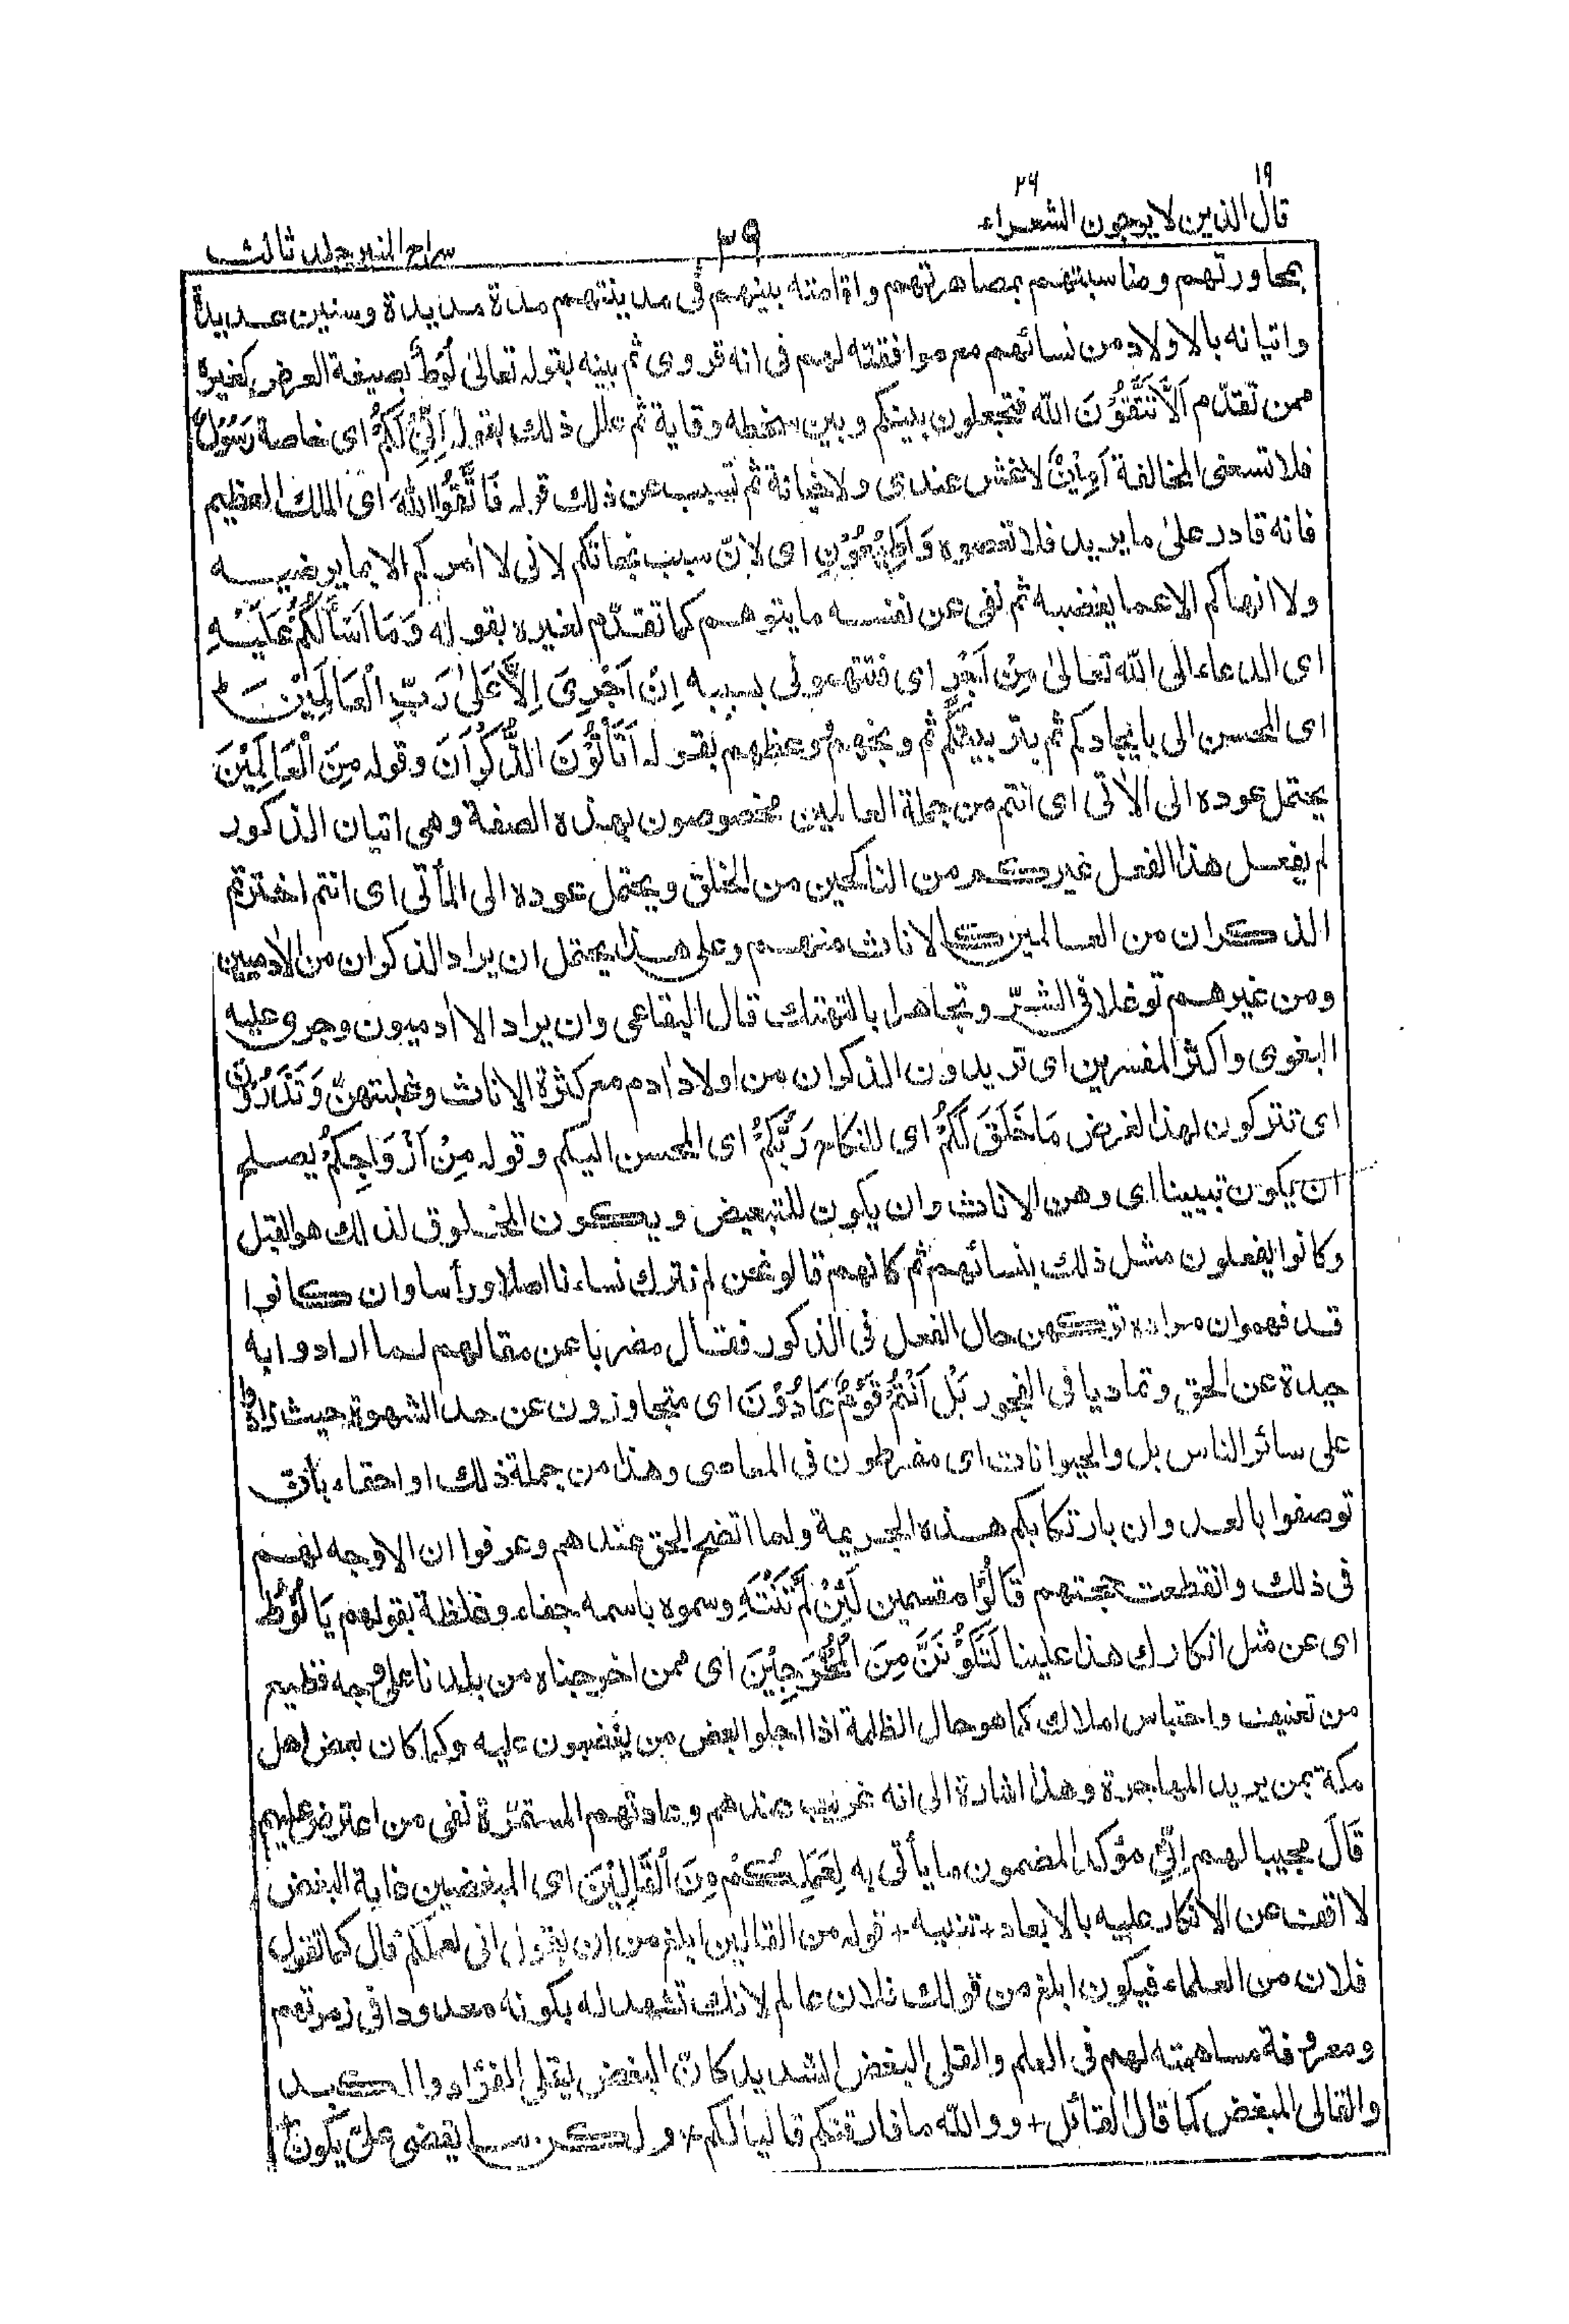 ١٩ ٢٦
قال الذين لا يرجون الشعراء ٣٩ سراج المنير جلد ثالث
بمجاورتهم ومناسبتهم بمصاهرتهم واقامته بينهم فى مدينتهم مدة مديدة وسنين عديدة
واتيانه بالاولاد من نسائهم مع موافقته لهم فى انه قروى ثم بينه بقوله تعالىٰ لُوْطٌ بصيغة العرض كغيره
ممن تقدّم اَلَا تَتَّقُوْنَ الله فتجعلون بينكم وبين سخطه وقاية ثم علل ذلك بقوله اِنِّىْ لَكُمْ اى خاصة رَسُوْلٌ
فلا تسعنى المخالفة اَمِيْنٌ لا غش عندى ولا خيانة ثم تسبب عن ذلك قوله فَاتَّقُوا اللهَ اى الملك العظيم
فانه قادر علىٰ ما يريد فلا تعصوه وَاَطِيْعُوْنِ اى لانّ سبب نجاتكم لانى لا اٰمركم الا بما يرضيه
ولا انهاكم الا عما يغضبه ثم نفى عن نفسه ما يتوهم كما تقدّم لغيره بقوله وَمَا اَسْأَلُكُمْ عَلَيْهِ
اى الدعاء الى الله تعالىٰ مِنْ اَجْرٍ اى فتتهمونى بسببه اِنْ اَجْرِىَ اِلَّا عَلٰى رَبِّ الْعَالَمِيْنَ
اى المحسن الى بايجادكم ثم بتربيتكم ثم وبخهم ووعظهم بقوله اَتَأْتُوْنَ الذُّكْرَانَ وقوله مِنَ الْعَالَمِيْنَ
يحتمل عوده الى الاٰتى اى انتم من جملة العالمين مخصوصون بهذه الصفة وهى اتيان الذكور
لم يفعل هذا الفعل غيركم من الناكحين من الخلق ويحتمل عوده الى المأتى اى انتم اخترتم
الذكران من العالمين كالاناث منهم وعلى هذا يحتمل ان يراد الذكران من الاٰدميين
ومن غيرهم توغلا فى الشرّ وتجاهرا بالتهتك قال البقاعى وان يراد الاٰدميون وجرى عليه
البغوى واكثر المفسرين اى تريدون الذكران من اولاد اٰدم مع كثرة الاناث وغلبتهنّ وَتَذَرُوْنَ
اى تتركون لهذا الغرض مَا خَلَقَ لَكُمْ اى للنكاح رَبُّكُمْ اى المحسن اليكم وقوله مِنْ اَزْوَاجِكُمْ يصلح
ان يكون تبيينا اى وهن الاناث وان يكون للتبعيض ويكون المخلوق لذلك هو القبل
وكانوا يفعلون مثل ذلك بنسائهم ثم كانهم قالو نحن لم نترك نساءنا اصلا ورأسا وان كانوا
قد فهموا ان مراده تركهن حال الفعل فى الذكور فقال مضربا عن مقالهم لما ارادوا به
حيدة عن الحق وتماديا فى الفجور بَلْ اَنْتُمْ قَوْمٌ عَادُوْنَ اى متجاوزون عن حد الشهوة حيث زادوا
على سائر الناس بل والحيوانات اى مفرطون فى المعاصى وهذا من جملة ذلك او احقاء بأن
توصفوا بالعدوان بارتكابكم هذه الجريمة ولما اتضح الحق عندهم وعرفوا ان لا وجه لهم
فى ذلك وانقطعت حجتهم قَالُوْا مقسمين لَئِنْ لَمْ تَنْتَهِ وسموه باسمه جفاء وغلظة بقولهم يَا لُوْطُ
اى عن مثل انكارك هذا علينا لَتَكُوْنَنَّ مِنَ الْمُخْرَجِيْنَ اى ممن اخرجناه من بلدنا على وجه فظيع
من تعنيف واحتباس املاك كما هو حال الظلمة اذا اجلوا بعض من يغضبون عليه وكما كان بعض اهل
مكة بمن يريد المهاجرة وهذا اشارة الى انه غريب عندهم وعادتهم المستمرّة نفى من اعترض عليهم
قَالَ مجيبا لهم اِنِّىْ مؤكدا لمضمون ما يأتى به لِعَمَلِكُمْ مِنَ الْقَالِيْنَ اى المبغضين غاية البغض
لا اقف عن الانكار عليه بالابعاد + تنبيه + قوله من القالين ابلغ من ان يقول انى لعملكم قال كما تقول
فلان من العلماء فيكون ابلغ من قولك فلان عالم لانك تشهد له بكونه معدودا فى زمرتهم
ومعرفة مساهمته لهم فى العلم والقلى البغض الشديد كانّ البغض يقلى الفؤاد والكبد
والقالى المبغض كما قال القائل + ووالله ما فارقتكم قاليا لكم + ولكن ما يقضى علىّ يكون